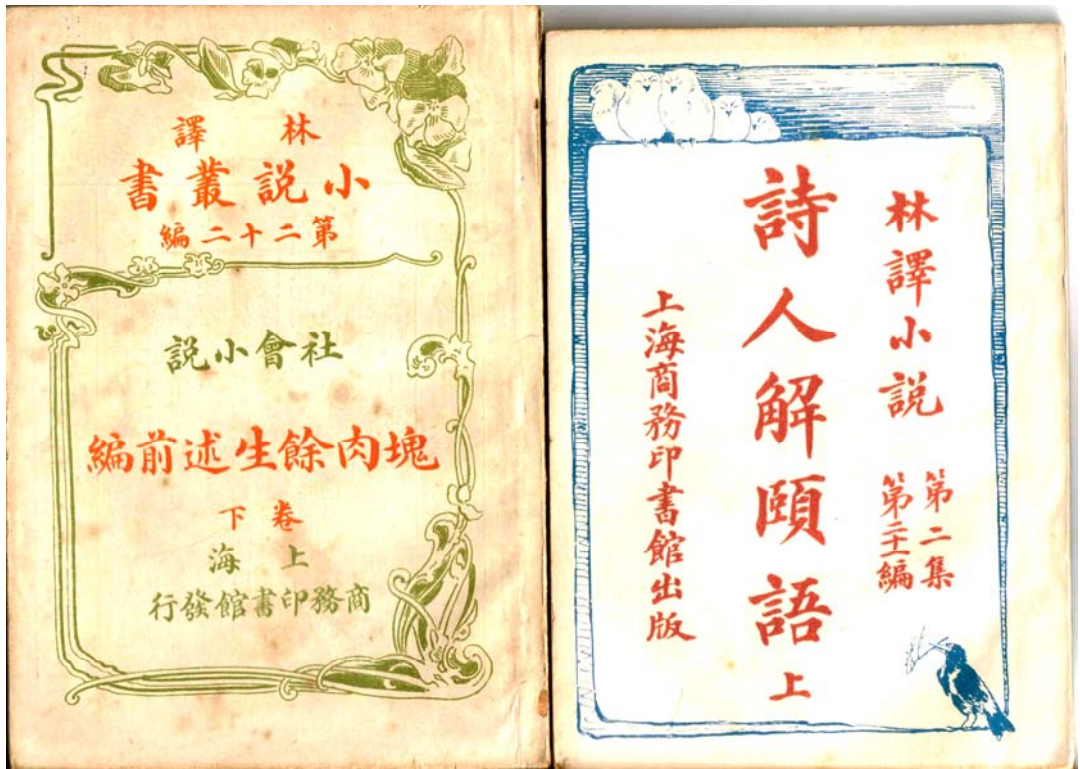 林譯
小説叢書
第二十二編
社會小説
塊肉餘生述前編
卷下
上海
商務印書館發行
林譯小説
第二集
第 編
詩人解頤語上
上海商務印書館出版